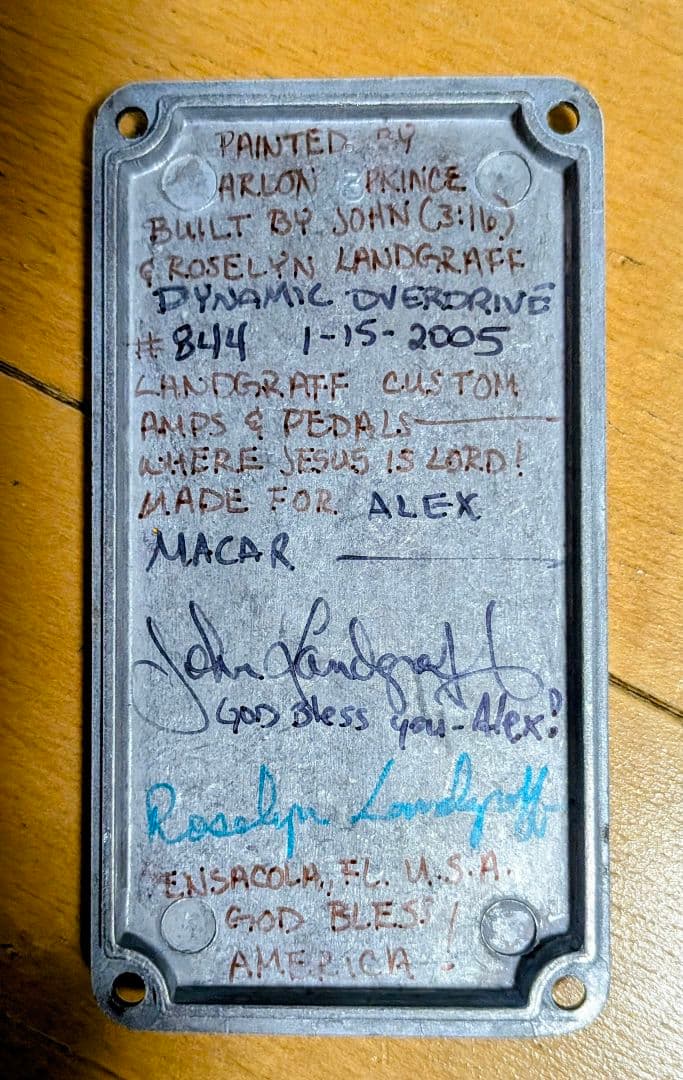 PAINTED BY
ARLON PRINCE
BUILT BY JOHN (3:16)
& ROSELYN LANDGRAFF
DYNAMIC OVERDRIVE
# 844 1-15-2005
LANDGRAFF CUSTOM
AMPS & PEDALS
WHERE JESUS IS LORD!
MADE FOR ALEX
MACAR
John Landgraff
GOD Bless you - Alex!
Roselyn Landgraff
ENSACOLA, FL. U.S.A.
GOD BLESS
AMERICA!